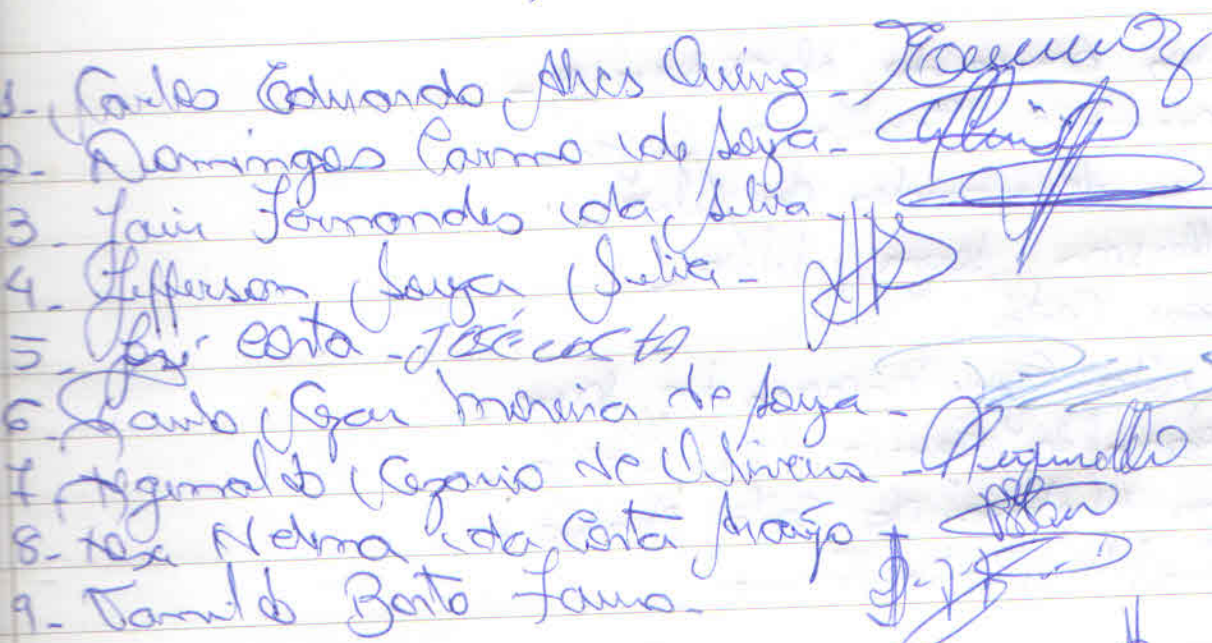 1- Carlos Eduardo Alves
2- Domingos Carmo de Souza -
3- Jair Fernandes da Silva
4- Jefferson Souza Silva -
5- José Costa - José Costa
6- Paulo Cezar Moreira de Souza -
7- Reginaldo Cezario de Oliveira - Reginaldo
8- Rosa Nelma da Costa Araújo -
9- Bento